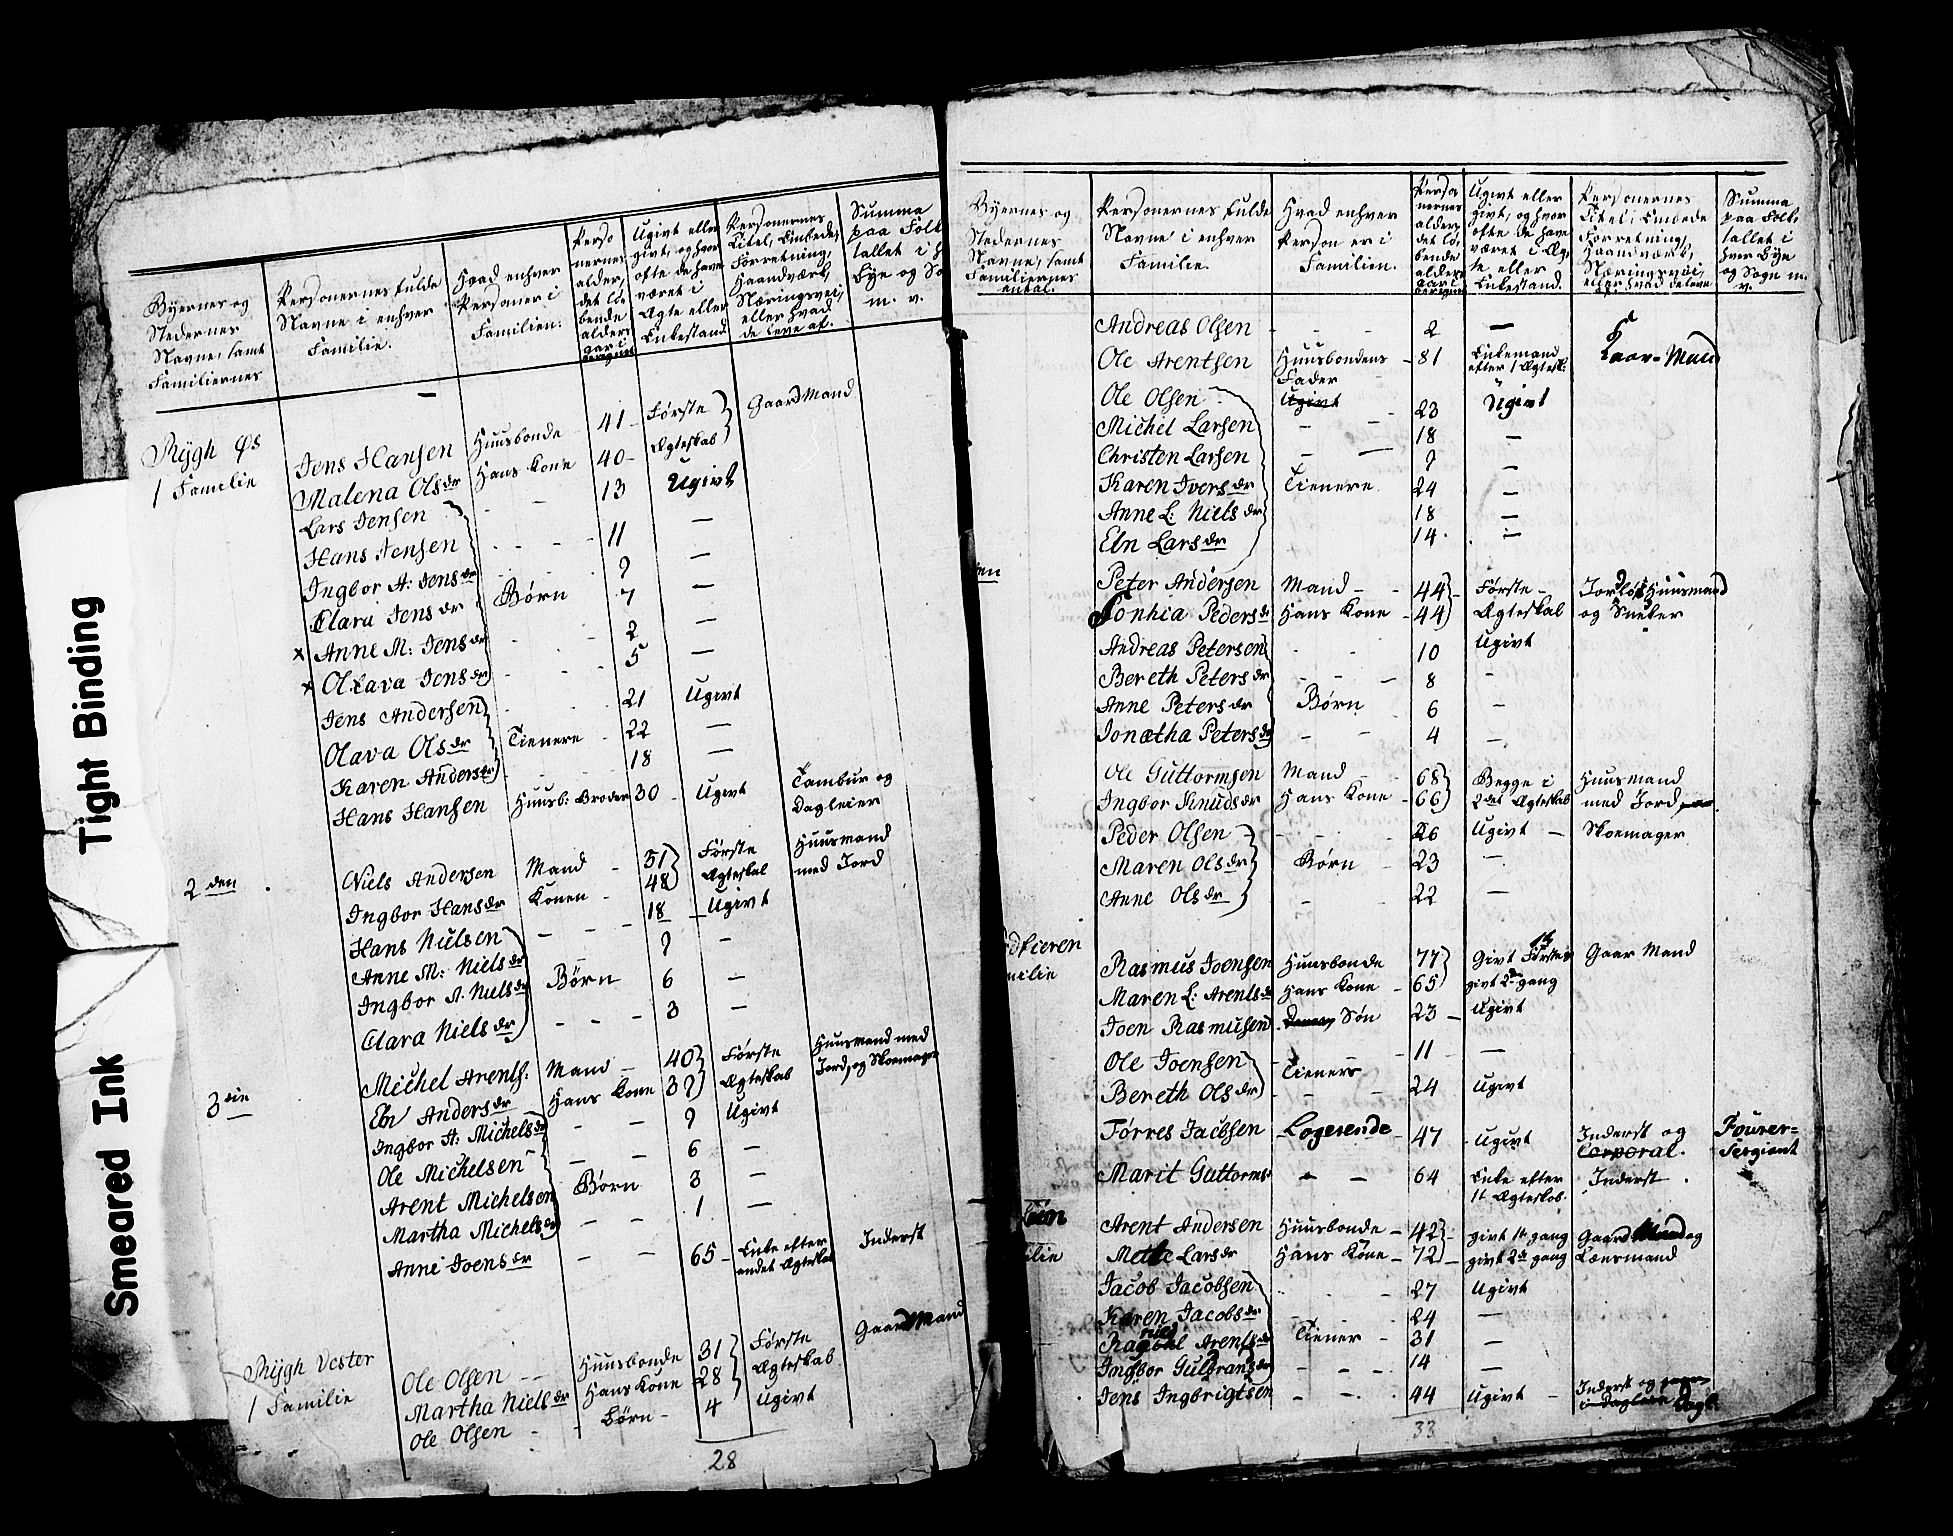 Tight Binding
Smeared Ink
Byernes og Stedernes Navne, samt Familiernes
Personernes fulde Navne i enhver Familie.
Hvad enhver Personer i Familien:
Personernes alder, det løbende alders aar i beregnet
Ugivt eller givt, og hvor ofte de have været i Ægte eller Enkestand
Personernes Titel, Embede, Forretning, Haandværk, Næringsvei, eller hvad de leve af.
Summa paa Folk tallet i h Bye og So m. v.
Rygh Øs
1 Familie
Jens Hansen Huusbonde 41 Første Gaard Mand
Malena Olsdr Hans Kone 40 Ægteskab
Lars Jensen - - 13 Ugivt
Hans Jensen - - - 11 -
Ingbor A: Jensdr - - - 9 -
Clara Jensdr Børn 7 -
x Anne M: Jensdr - - 2 -
x Olava Jensdr - - 5 -
Jens Andersen - - 21 Ugivt
Olava Olsdr Tienere 22 -
Karen Andersdr - - - 18 -
Hans Hansen Huusb: Broder 30 Ugivt Tambur og Dagleier
2den
Niels Andersen Mand - 51 Første Huusmand
Ingbor Hansdr Konen - 48 Ægteskab med Jord
Hans Nielsen - - - 18 Ugivt
Anne M: Nielsdr 9 -
Ingbor A. Nielsdr Børn 6 -
Clara Nielsdr - - - 3 -
3die
Michel Arents: Mand - 40 Første Huusmand med
Eln Andersdr Hans Kone 39 Ægteskab Jord, og Skoemager
Ingbor A: Michelsdr - - 9 Ugivt
Ole Michelsen - - 6 -
Arent Michelsen Børn 3 -
Martha Michelsdr - - 1 -
Anne Joensdr - - 65 Enke efter andet Ægteskab Inderst
Rygh Vester
1 Familie
Ole Olsen - - Huusbonde 31 Første Gaard Mand
Martha Nielsdr Hans Kone 28 Ægteskab
Ole Olsen - Børn - 4 Ugivt
28
Byernes og Stedernes Navne, samt Familiernes antal.
Personernes fulde Navne i enhver Familie.
Hvad enhver Person er i Familien.
Personernes alder, det løbende alders aar i beregnet
Ugivt eller givt, og hvor ofte de have været i Ægte eller Enkestand.
Personernes Titel, Embede Forretning, Haandværk, Næringsvei, eller hvad de leve
Summa paa Folketallet i hver Bye og Sogn m. v.
Andreas Olsen - - - 2 -
Ole Arentsen Huusbondens Fader 81 Enkemand efter 1 Ægtesk:
Ole Olsen - Ugivt - 23 Ugivt
Michel Larsen - - 18 -
Christen Larsen - - 9 -
Karen Iversdr Tienere 24 -
Anne L: Nielsdr 18 -
Eln Larsdr 14 -
Peter Andersen Mand - - 44 Første - Jordløs Huusmand
Sophia Pedersdr Hans Kone 44 Ægteskab og Snecker
Andreas Petersen - - 10 Ugivt
Bereth Petersdr - - - 8 -
Anne Petersdr Børn 6 -
Jonætha Petersdr - - 4 -
Ole Guttormsen Mand - 68 Begge i Huusmand
Ingbor Knudsdr Hans Kone 66 2det Ægteskab med Jord,
Peder Olsen - - - 26 Ugivt - Skoemager
Maren Olsdr Børn - 23 -
Anne Olsdr - - 22 -
milie
Rasmus Joensen Huusbonde 77 Givt Første Gaar Mand
Maren L: Arentsdr Hans Kone 65 givt 2den gang
Joen Rasmusen Søn 23 Ugivt
Ole Joensen - - 11 -
Bereth Olsdr Tienere 24 Ugivt
Tørres Jacobsen Logerende 47 Ugivt Inderst og Corporal. Fourer-Sergiant
Marit Guttorms - - 64 Enke efter 1t Ægteskab. Inderst.
ilie
Arent Andersen Huusbonde - 42 givt 1te gang Gaard Mand og
Mette Larsdr Hans Kone - 72 givt 2de gang Lænsmand
Jacob Jacobsen - 27 Ugivt
Karen Jacobsdr - - 24 -
Arentsdr Tiener - 31 -
Ingbor Gulbrandsdr - - - 14 -
Jens Ingbrigtsen - - 44 Ugivt - Inderst og
33